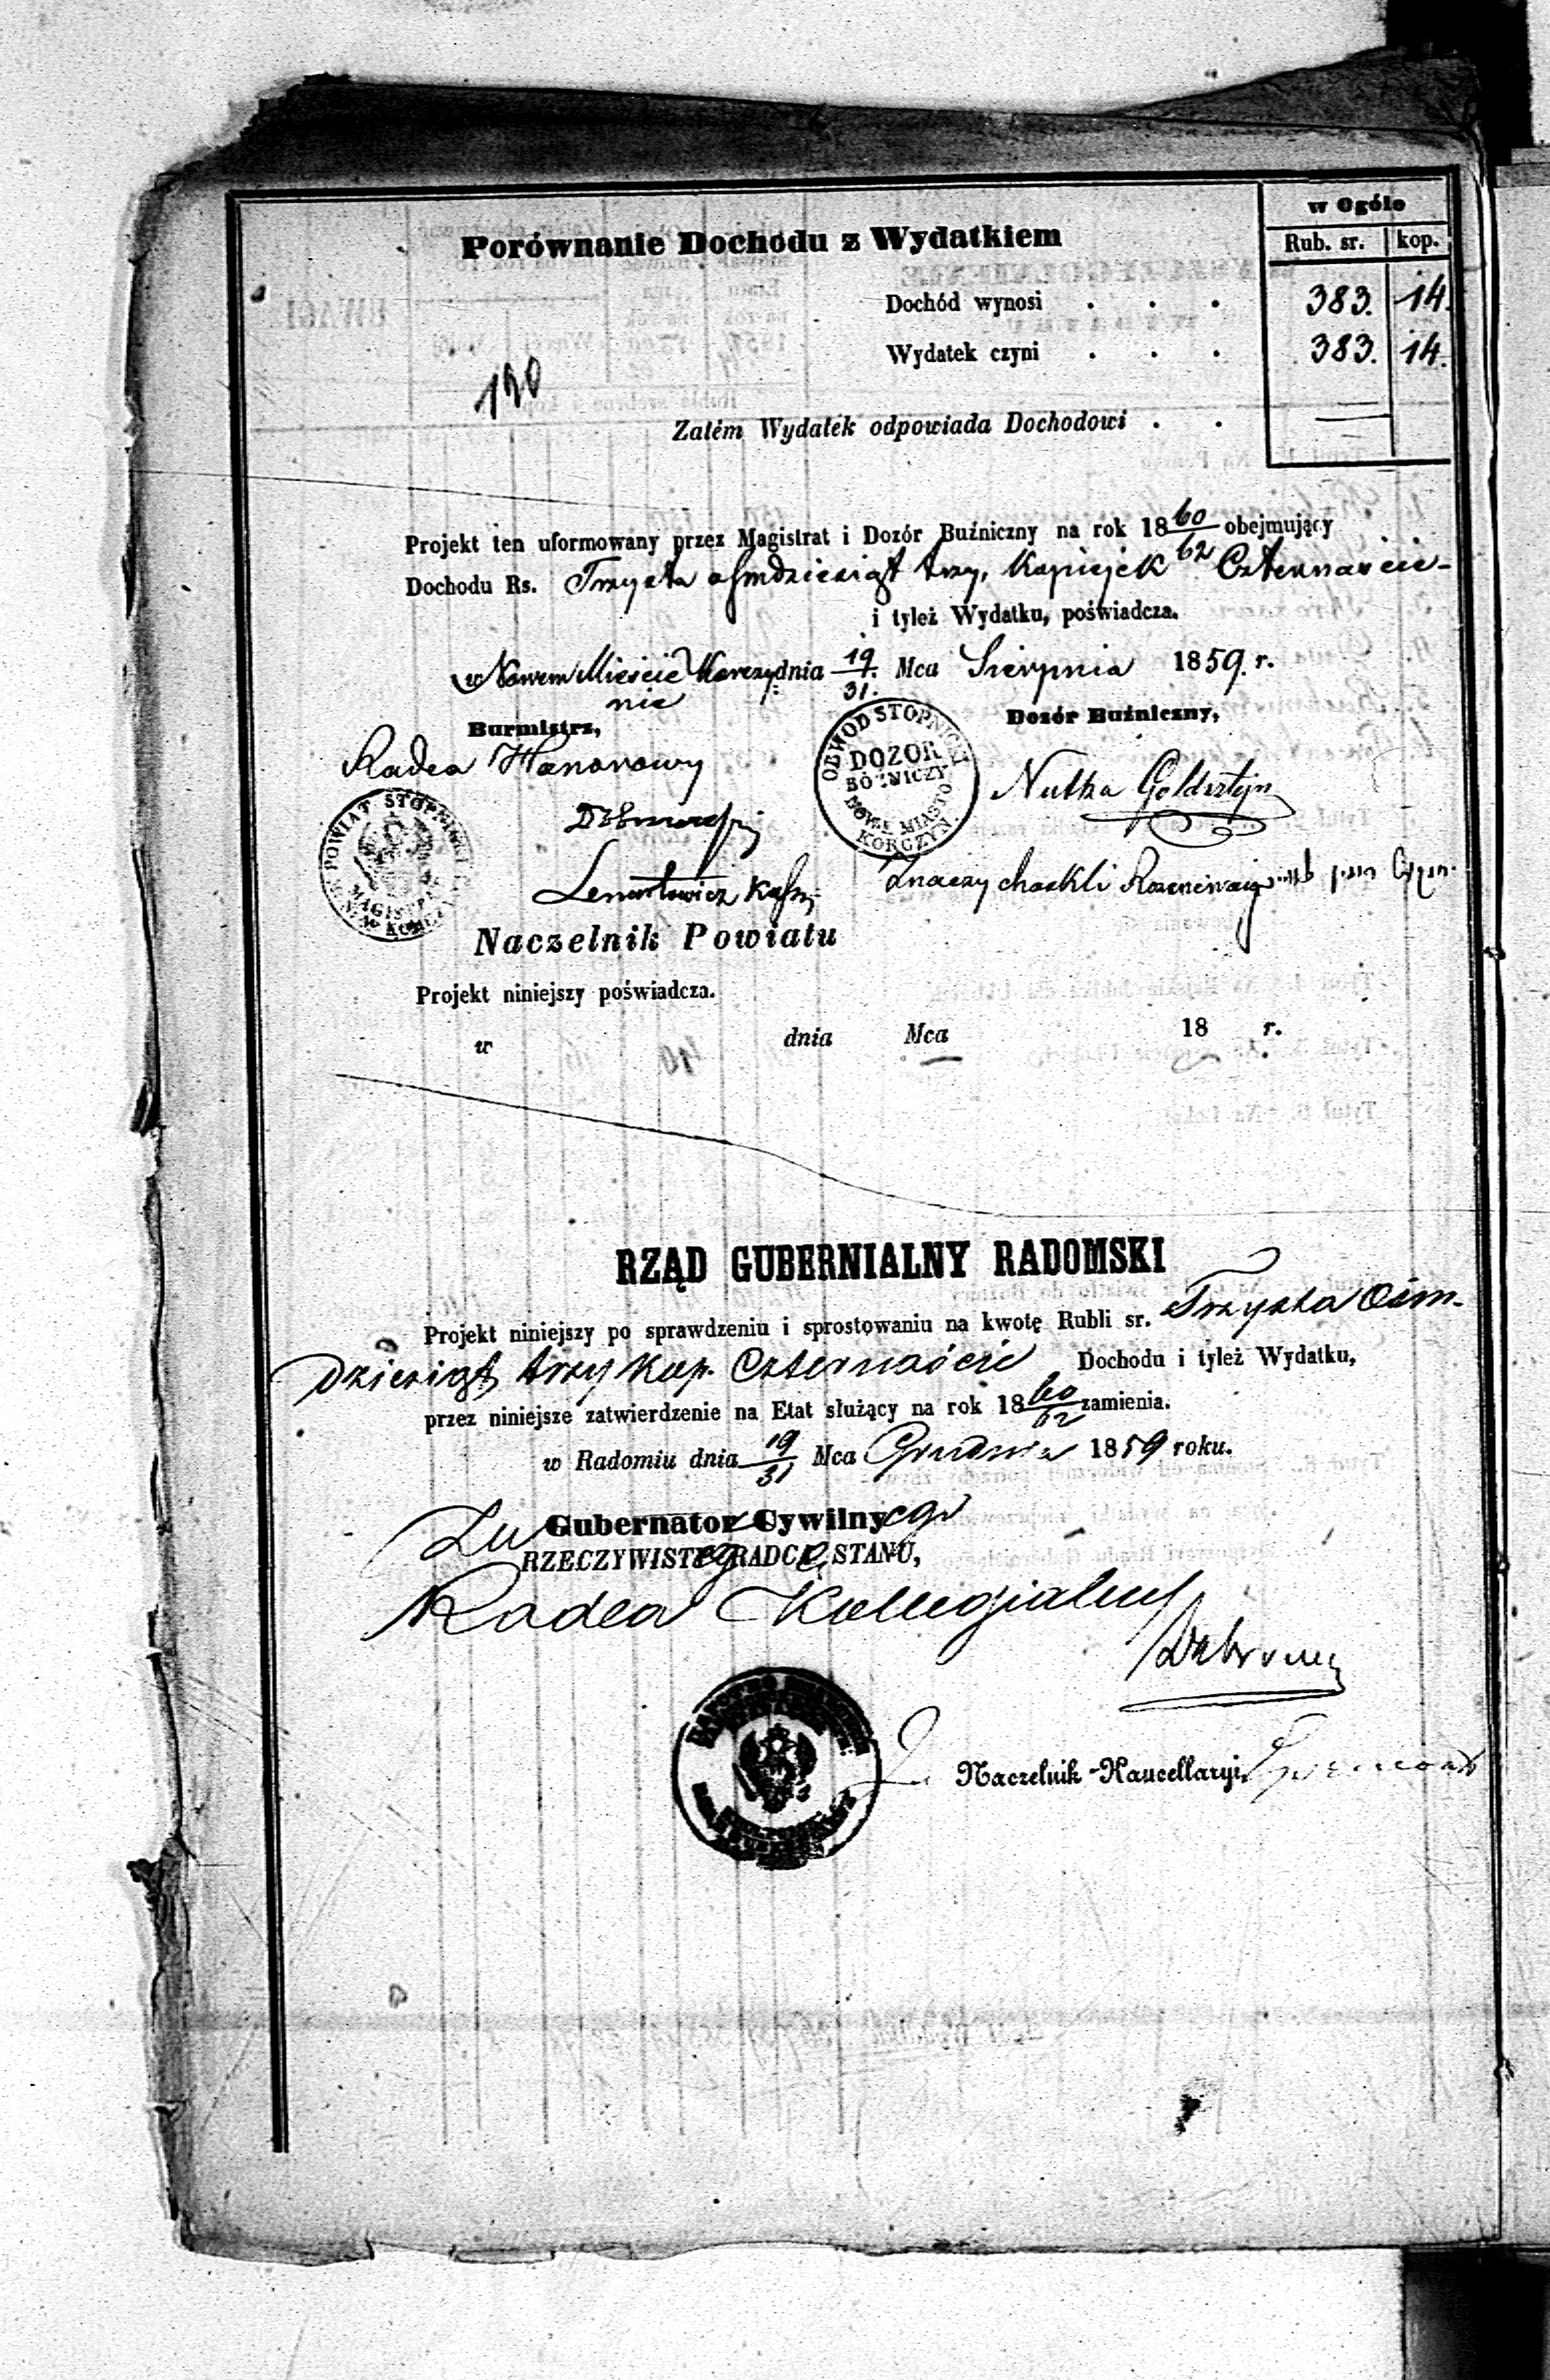 w Ogóle
Porównanie Dochodu z Wydatkiem
Rub. sr. kop.
Dochód wynosi . . . 383. 14.
Wydatek czyni . . . 383. 14.
190
Zatém Wydatek odpowiada Dochodowi . .
Projekt ten uformowany przez Magistrat i Dozór Buźniczny na rok 18 60/62 obejmujący
Dochodu Rs. Trzysta ośmdziesiąt trzy, Kopiejek Czternaście-
i tyleż Wydatku, poświadcza.
w Nowem Mieście Korczy- dnia 19/31. Mca Sierpnia 1859. r.
nie
Burmistrz, Dozór Buźniczny,
Radca Honorowy
OBWÓD STOPNICKI
DOZOR
BÓŻNICZY
NOWE MIASTO
KORCZYN.
Nutka Goldsztyn
POWIAT STOPNICKI
MAGIST
Lenartowicz
Znaczy
Naczelnik Powiatu
Projekt niniejszy poświadcza.
w dnia Mca 18 r.
RZĄD GUBERNIALNY RADOMSKI
Projekt niniejszy po sprawdzeniu i sprostowaniu na kwotę Rubli sr. Trzysta Ośm-
dziesiąt trzy Kop. Czternaście Dochodu i tyleż Wydatku,
przez niniejsze zatwierdzenie na Etat służący na rok 18 60/62 zamienia.
w Radomiu dnia 19/31 Mca Grudnia 1859 roku.
Za Gubernatora Cywilnego
RZECZYWISTEGO RADCĘ STANU,
Radca Kollegialny
Naczelnik Kancellaryi,